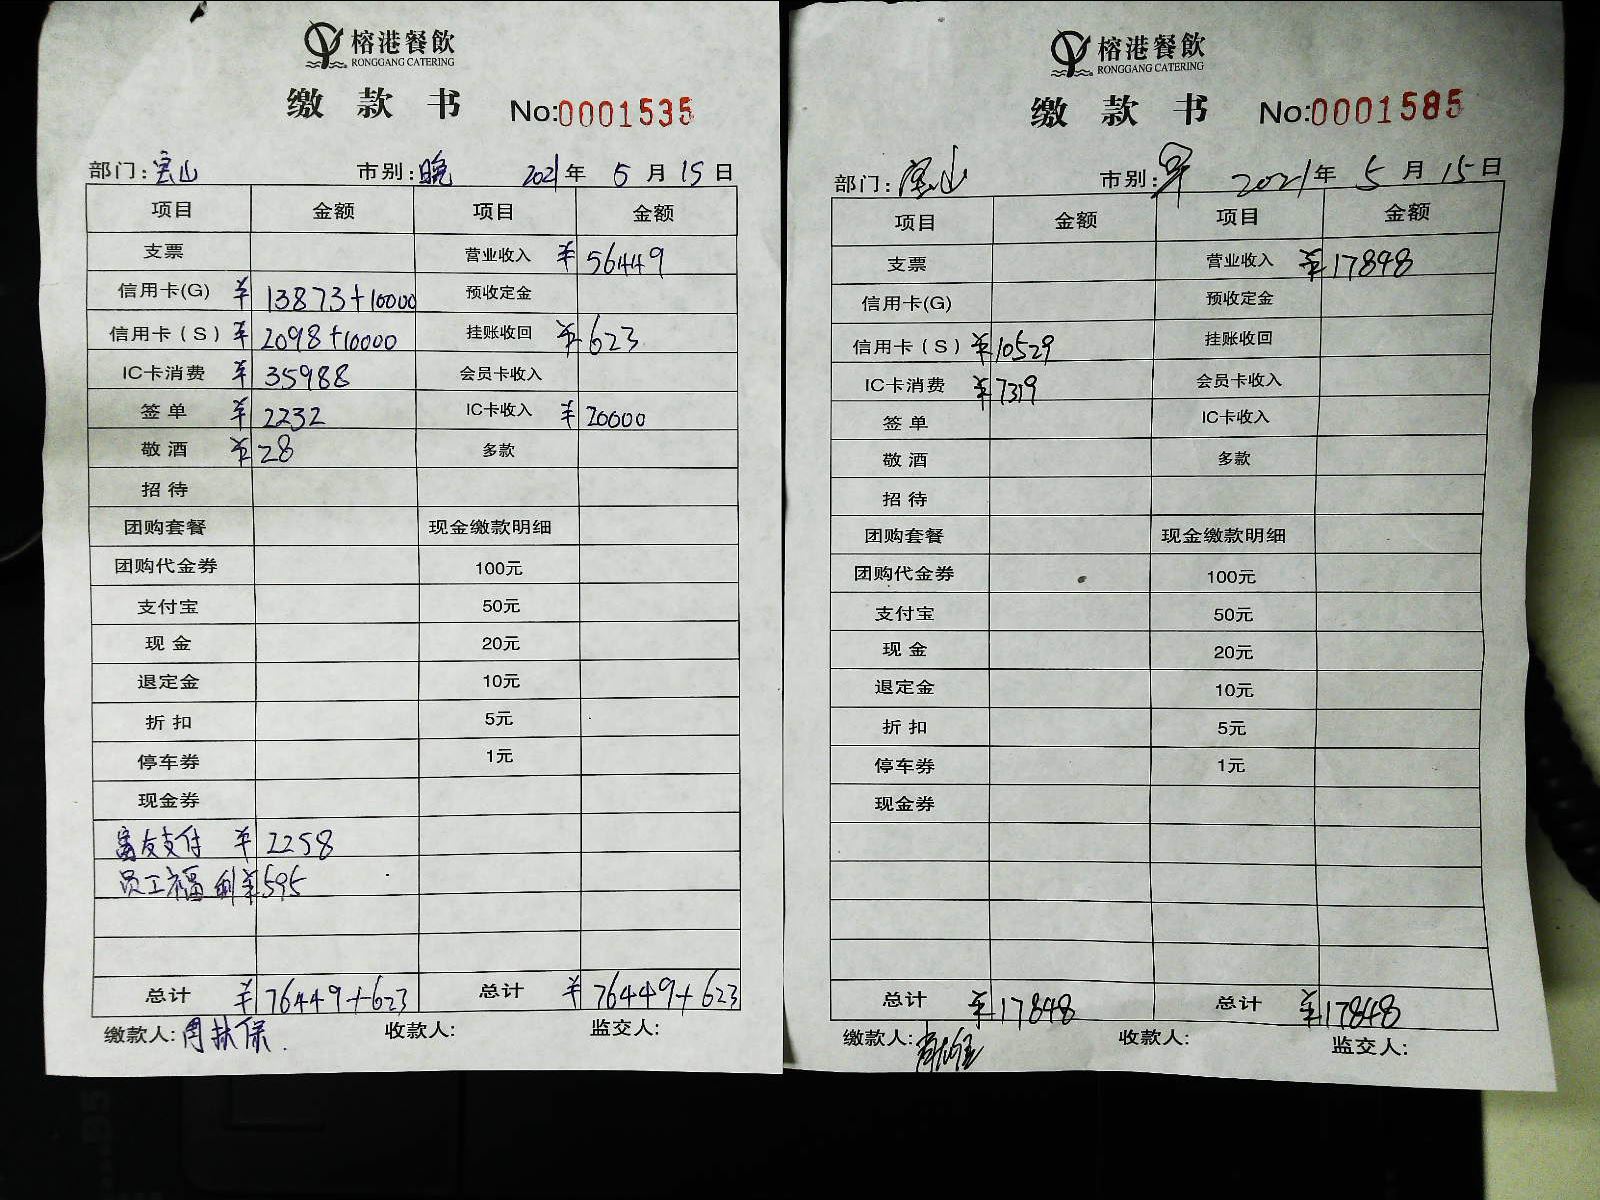 榕港餐飲
RONGGANG CATERING
缴款书 No:0001535
部门:宝山 市别:晚 2021年 5月15日
项目 金额 项目 金额
支票 营业收入 ¥56449
信用卡(G) ¥13873+10000 预收定金
信用卡(S) ¥2098+10000 挂账收回 ¥623
IC卡消费 ¥35988 会员卡收入
签单 ¥2232 IC卡收入 ¥20000
敬酒 ¥28 多款
招待
团购套餐 现金缴款明细
团购代金券 100元
支付宝 50元
现金 20元
退定金 10元
折扣 5元
停车券 1元
现金券
富友支付 ¥2258
员工福利 ¥595
总计 ¥76449+623 总计 ¥76449+623
缴款人:周扶保. 收款人: 监交人:
榕港餐飲
RONGGANG CATERING
缴款书 No:0001585
部门:宝山 市别:早 2021年 5月15日
项目 金额 项目 金额
支票 营业收入 ¥17848
信用卡(G) 预收定金
信用卡(S) ¥10529 挂账收回
IC卡消费 ¥7319 会员卡收入
签单 IC卡收入
敬酒 多款
招待
团购套餐 现金缴款明细
团购代金券 100元
支付宝 50元
现金 20元
退定金 10元
折扣 5元
停车券 1元
现金券
总计 ¥17848 总计 ¥17848
缴款人: 收款人: 监交人: